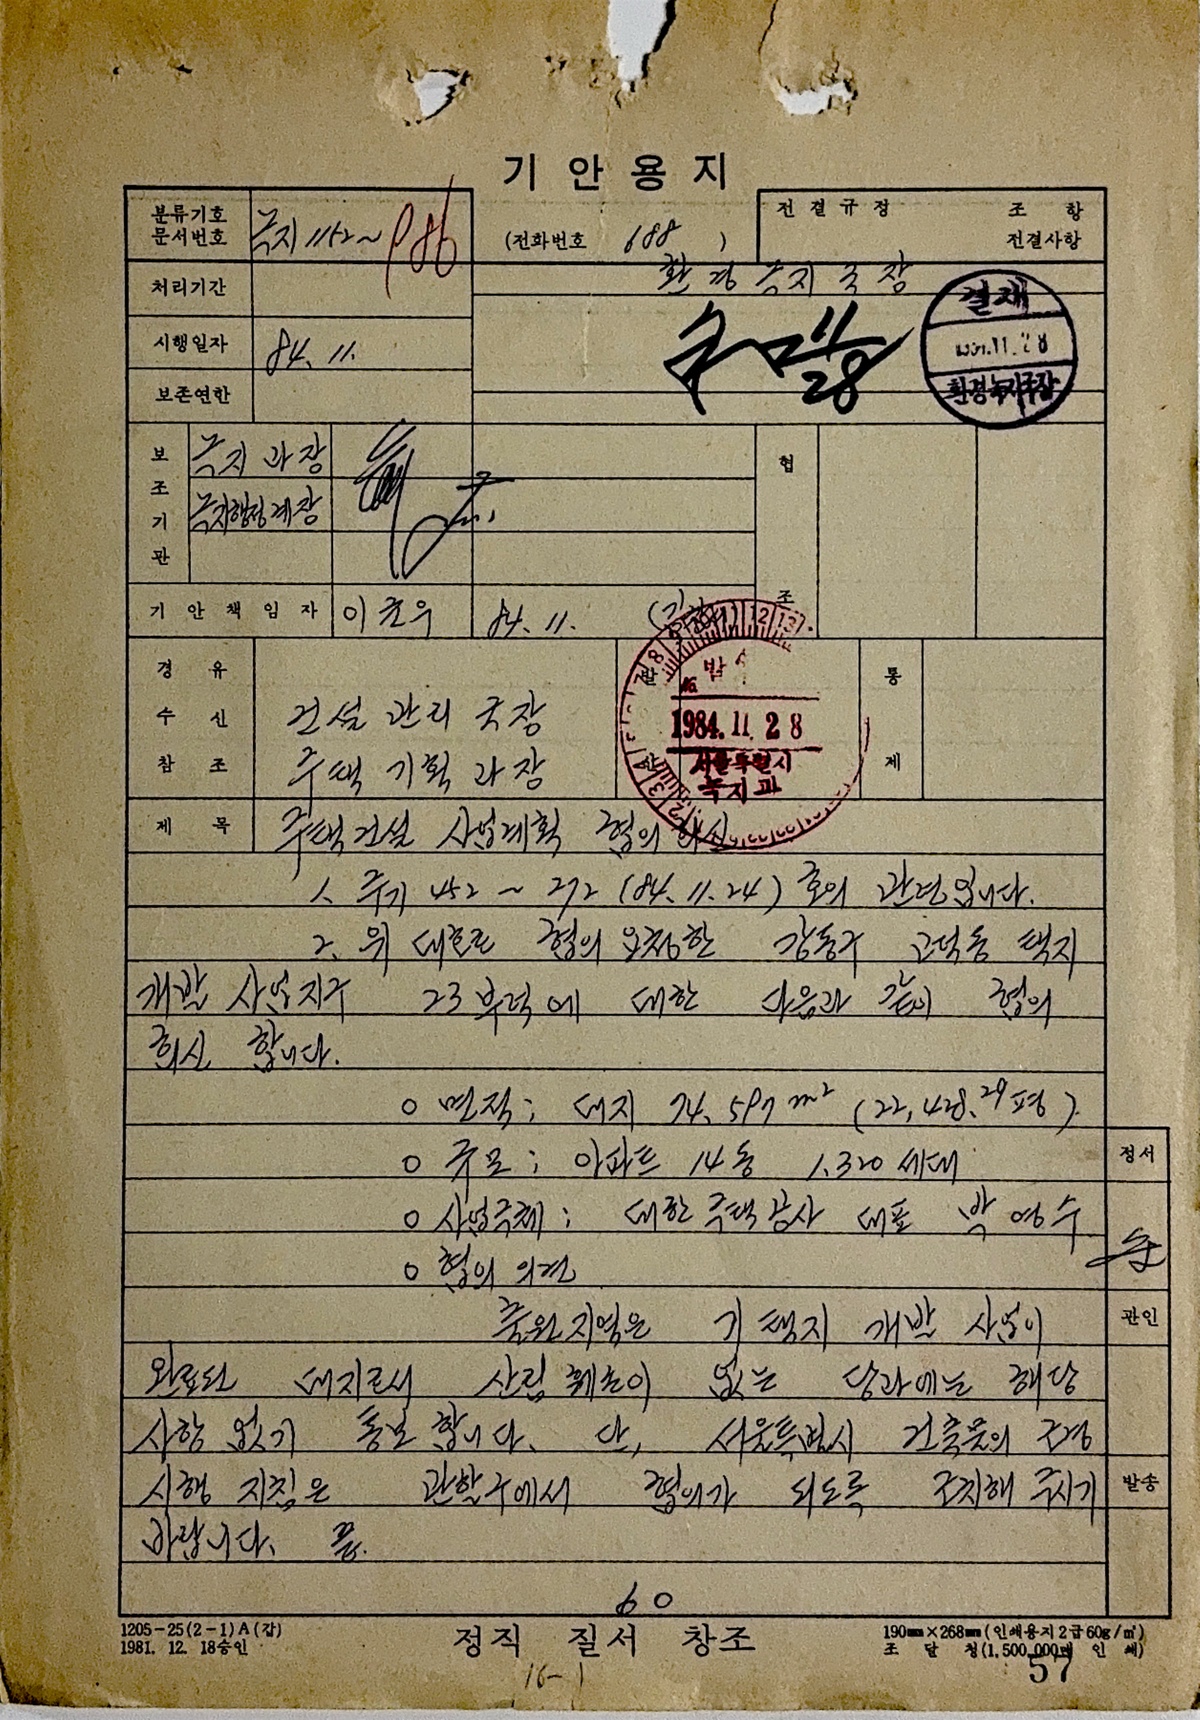 기안용지
분류기호
문서번호
녹지 1152~ 986
(전화번호 688 )
전결규정 조 항
전결사항
처리기간
환경녹지국장
시행일자 84. 11.
11/28
결재
11. 28
환경녹지국장
보존연한
보조기관
녹지과장
녹지행정계장
협조
기안책임자 이 우 84. 11.
경유
수신 건설관리국장
참조 주택기획과장
발신
통제
1984. 11. 28
서울특별시
녹지과
제목 주택건설 사업계획 협의 회신
1. 주기 452~272 (84. 11. 24) 호의 관련입니다.
2. 위 대호로 협의 요청한 강동구 고덕동 택지
개발 사업지구 23 부럭에 대한 다음과 같이 협의
회신 합니다.
o 면적 : 대지 74,597㎡ (22,428.29평)
o 규모 : 아파트 14동 1,320세대
o 사업주체 : 대한주택공사 대표 박영수
o 협의 의견
축원지역은 기 택지 개발 사업이
완료된 대지로서 산림훼손이 없는 당과에는 해당
사항 없기 통보 합니다. 단, 서울특별시 건축물의 조경
시행 지침은 관할구에서 협의가 되도록 조치해 주시기
바랍니다. 끝.
정서
관인
발송
60
1205-25(2-1)A(갑)
1981. 12. 18승인
정직 질서 창조
190㎜×268㎜(인쇄용지2급60g/㎡)
조 달 청(1,500,000매 인 쇄)
16-1
57